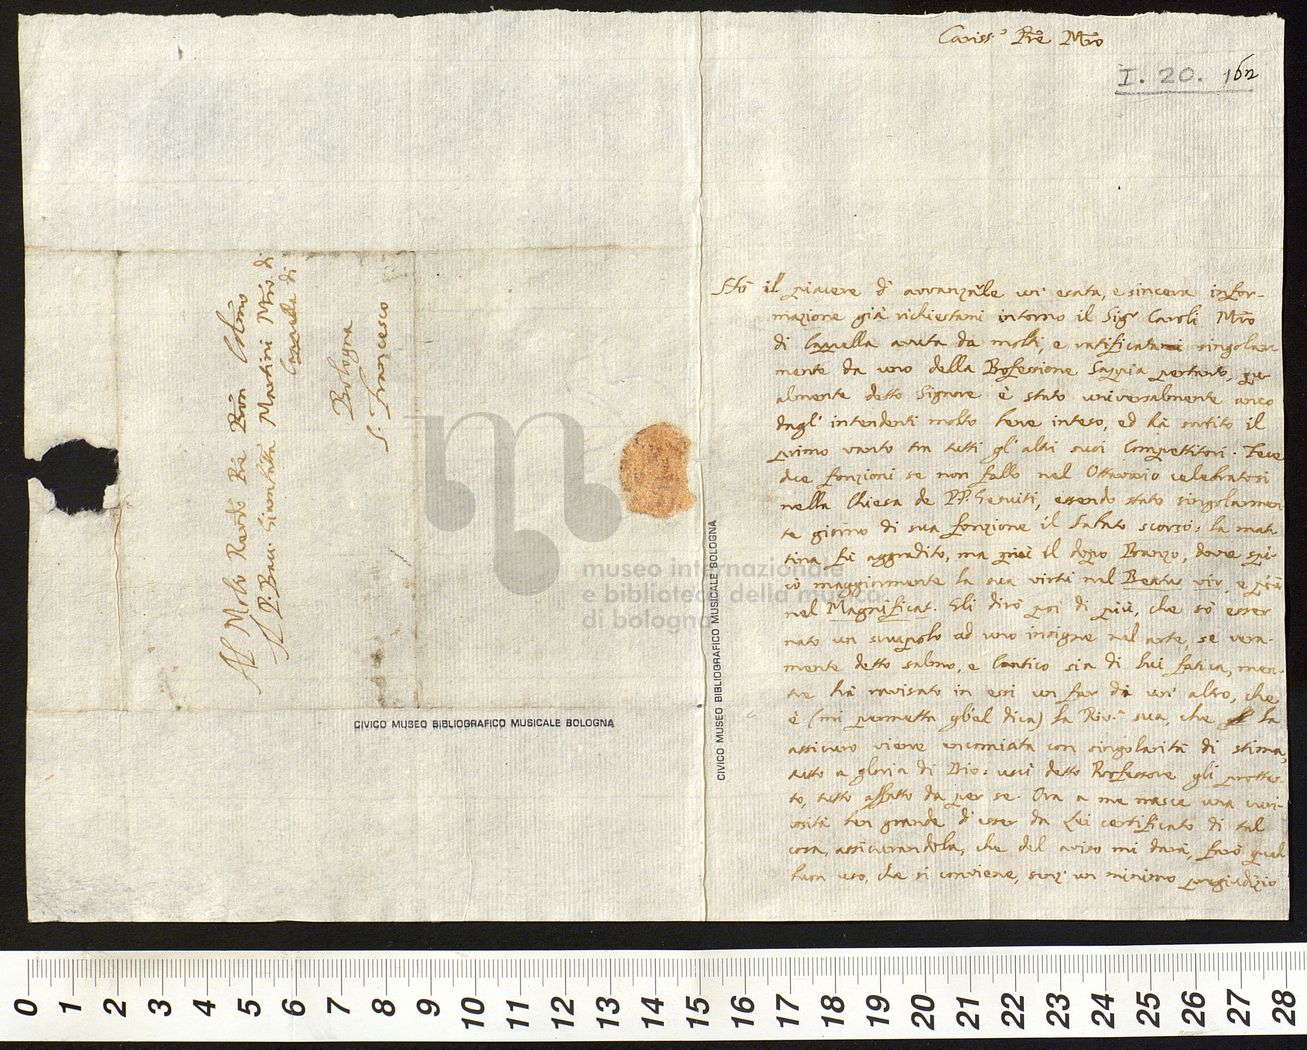 Cariss.º Prē Mrō
I. 20. 162
Hò il piacere d' avvanzarle un' esata, e sincera infor-
mazione già richiestami intorno il Sigr Caroli Mrō
di Cappella avuta da molti, e ratificatami singolar
mente da uno della Professione Sappia pertanto, que
almente detto Signore è stato universalmente anco
dagl' intendenti molto bene inteso, ed hà sortito il
primo vanto tra tutti gl' altri suoi Compettitori. Fece
due fonzioni se non fallo nel Ottavario celebratosi
nella Chiesa de PP. Gesuiti, essendo stato singolarmen
te giorno di sua fonzione il Sabato scorso: la mat
tina fù aggradito, ma poi il dopo Pranzo, dove spi-
cò maggiormente la sua virtù nel Beatus vir, e più
nel Magnificat. Gli dirò poi di più, che sò esser
nato un scrupolo ad uno insigne nel arte, se vera-
mente detto salmo, e Cantico sia di lui fatica, men-
tre hà ravisato in essi un far di un' altro, che
è (mi permetta gliel dica) la Riv.ª sua, che la
assicuro viene encomiata con singolarità di stima,
tutto a gloria di Dio: uscì detto Professore gli protte-
sto, tutto affatto da per se. Ora a me nasce una curi-
osità ben grande d' esser da Lei certificato di tal
cosa, assicurandola, che del aviso mi darà, farò quel
buon uso, che si conviene, senz' un minimo pregiudizio
Al Molto Revdō Prē Prōn Colmō
Al P. Bacc. Giambatta Martini Mrō di
Cappella di
Bologna
S. Francesco
CIVICO MUSEO BIBLIOGRAFICO MUSICALE BOLOGNA
CIVICO MUSEO BIBLIOGRAFICO MUSICALE BOLOGNA
museo internazionale
e biblioteca della musica
di bologna
0 1 2 3 4 5 6 7 8 9 10 11 12 13 14 15 16 17 18 19 20 21 22 23 24 25 26 27 28